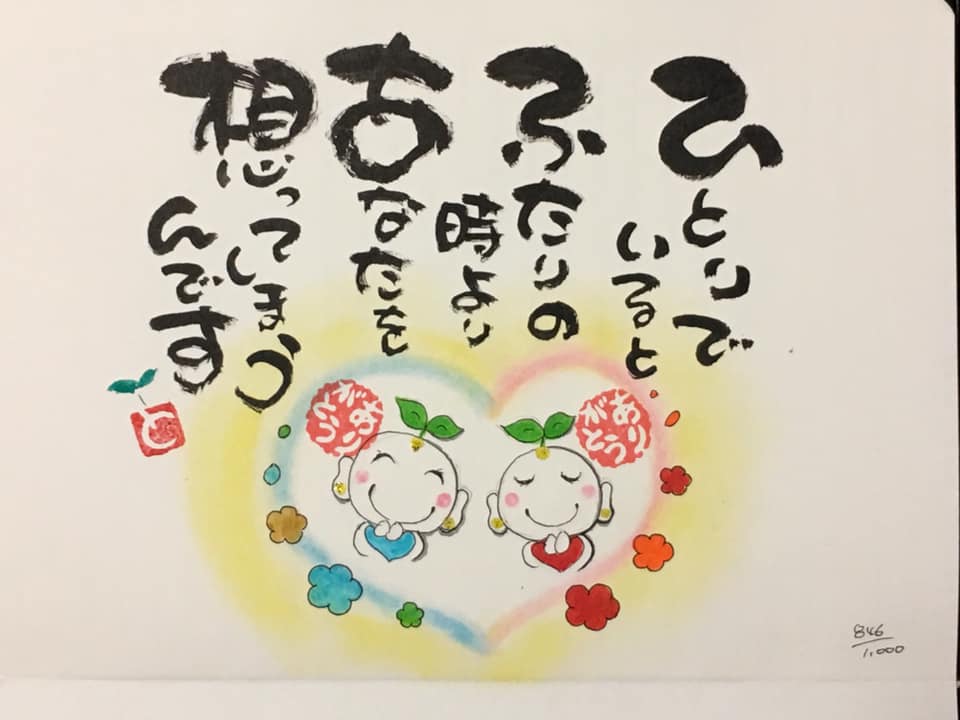 ひとりで
いると
ふたりの
時より
あなたを
想ってしまう
んです
と
ありがとう
ありがとう
846/1,000